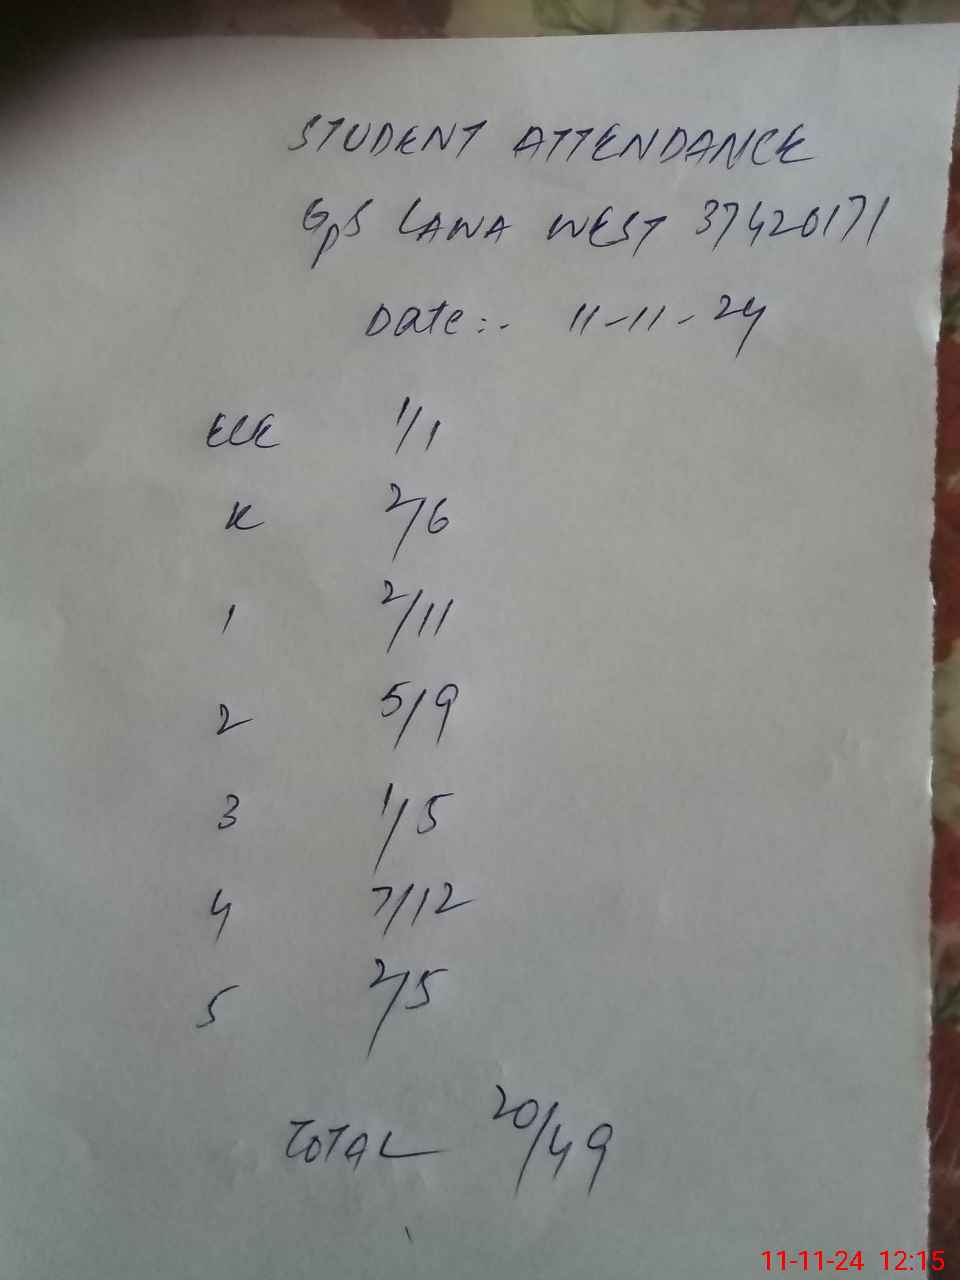 STUDENT ATTENDANCE
GPS LAWA WEST 37420171
Date:- 11-11-24
ECE 1/1
K 2/6
1 2/11
2 5/9
3 1/5
4 7/12
5 2/5
TOTAL 20/49
11-11-24 12:15